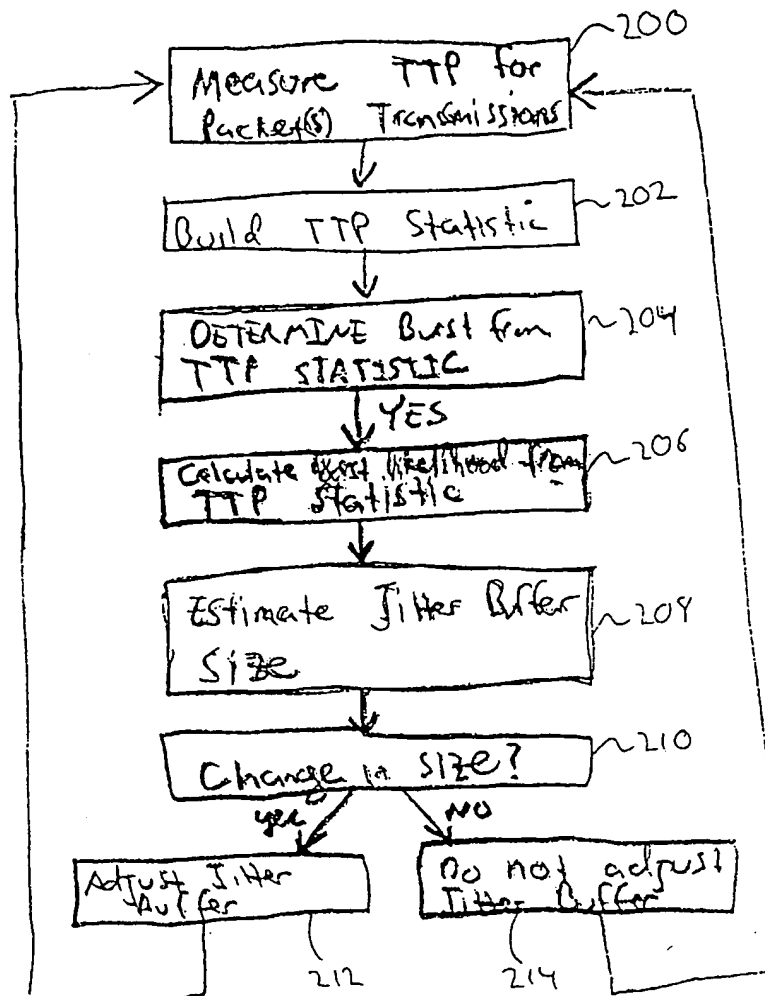 200
Measure TTP for
Packet(s) Transmissions
202
Build TTP Statistic
204
DETERMINE Burst from
TTP STATISTIC
YES
206
Calculate Burst likelihood from
TTP Statistic
Estimate Jitter Buffer
208
Size
210
Change in size?
yes
NO
Adjust Jitter
Buffer
Do not adjust
Jitter Buffer
212
214